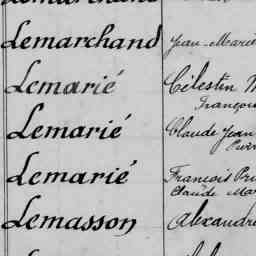 Lemarchand Jean-Marie
Lemarié Célestin
François
Lemarié Claude Jean
Pierr
Lemarié François
Claude Mar
Lemasson Alexandre